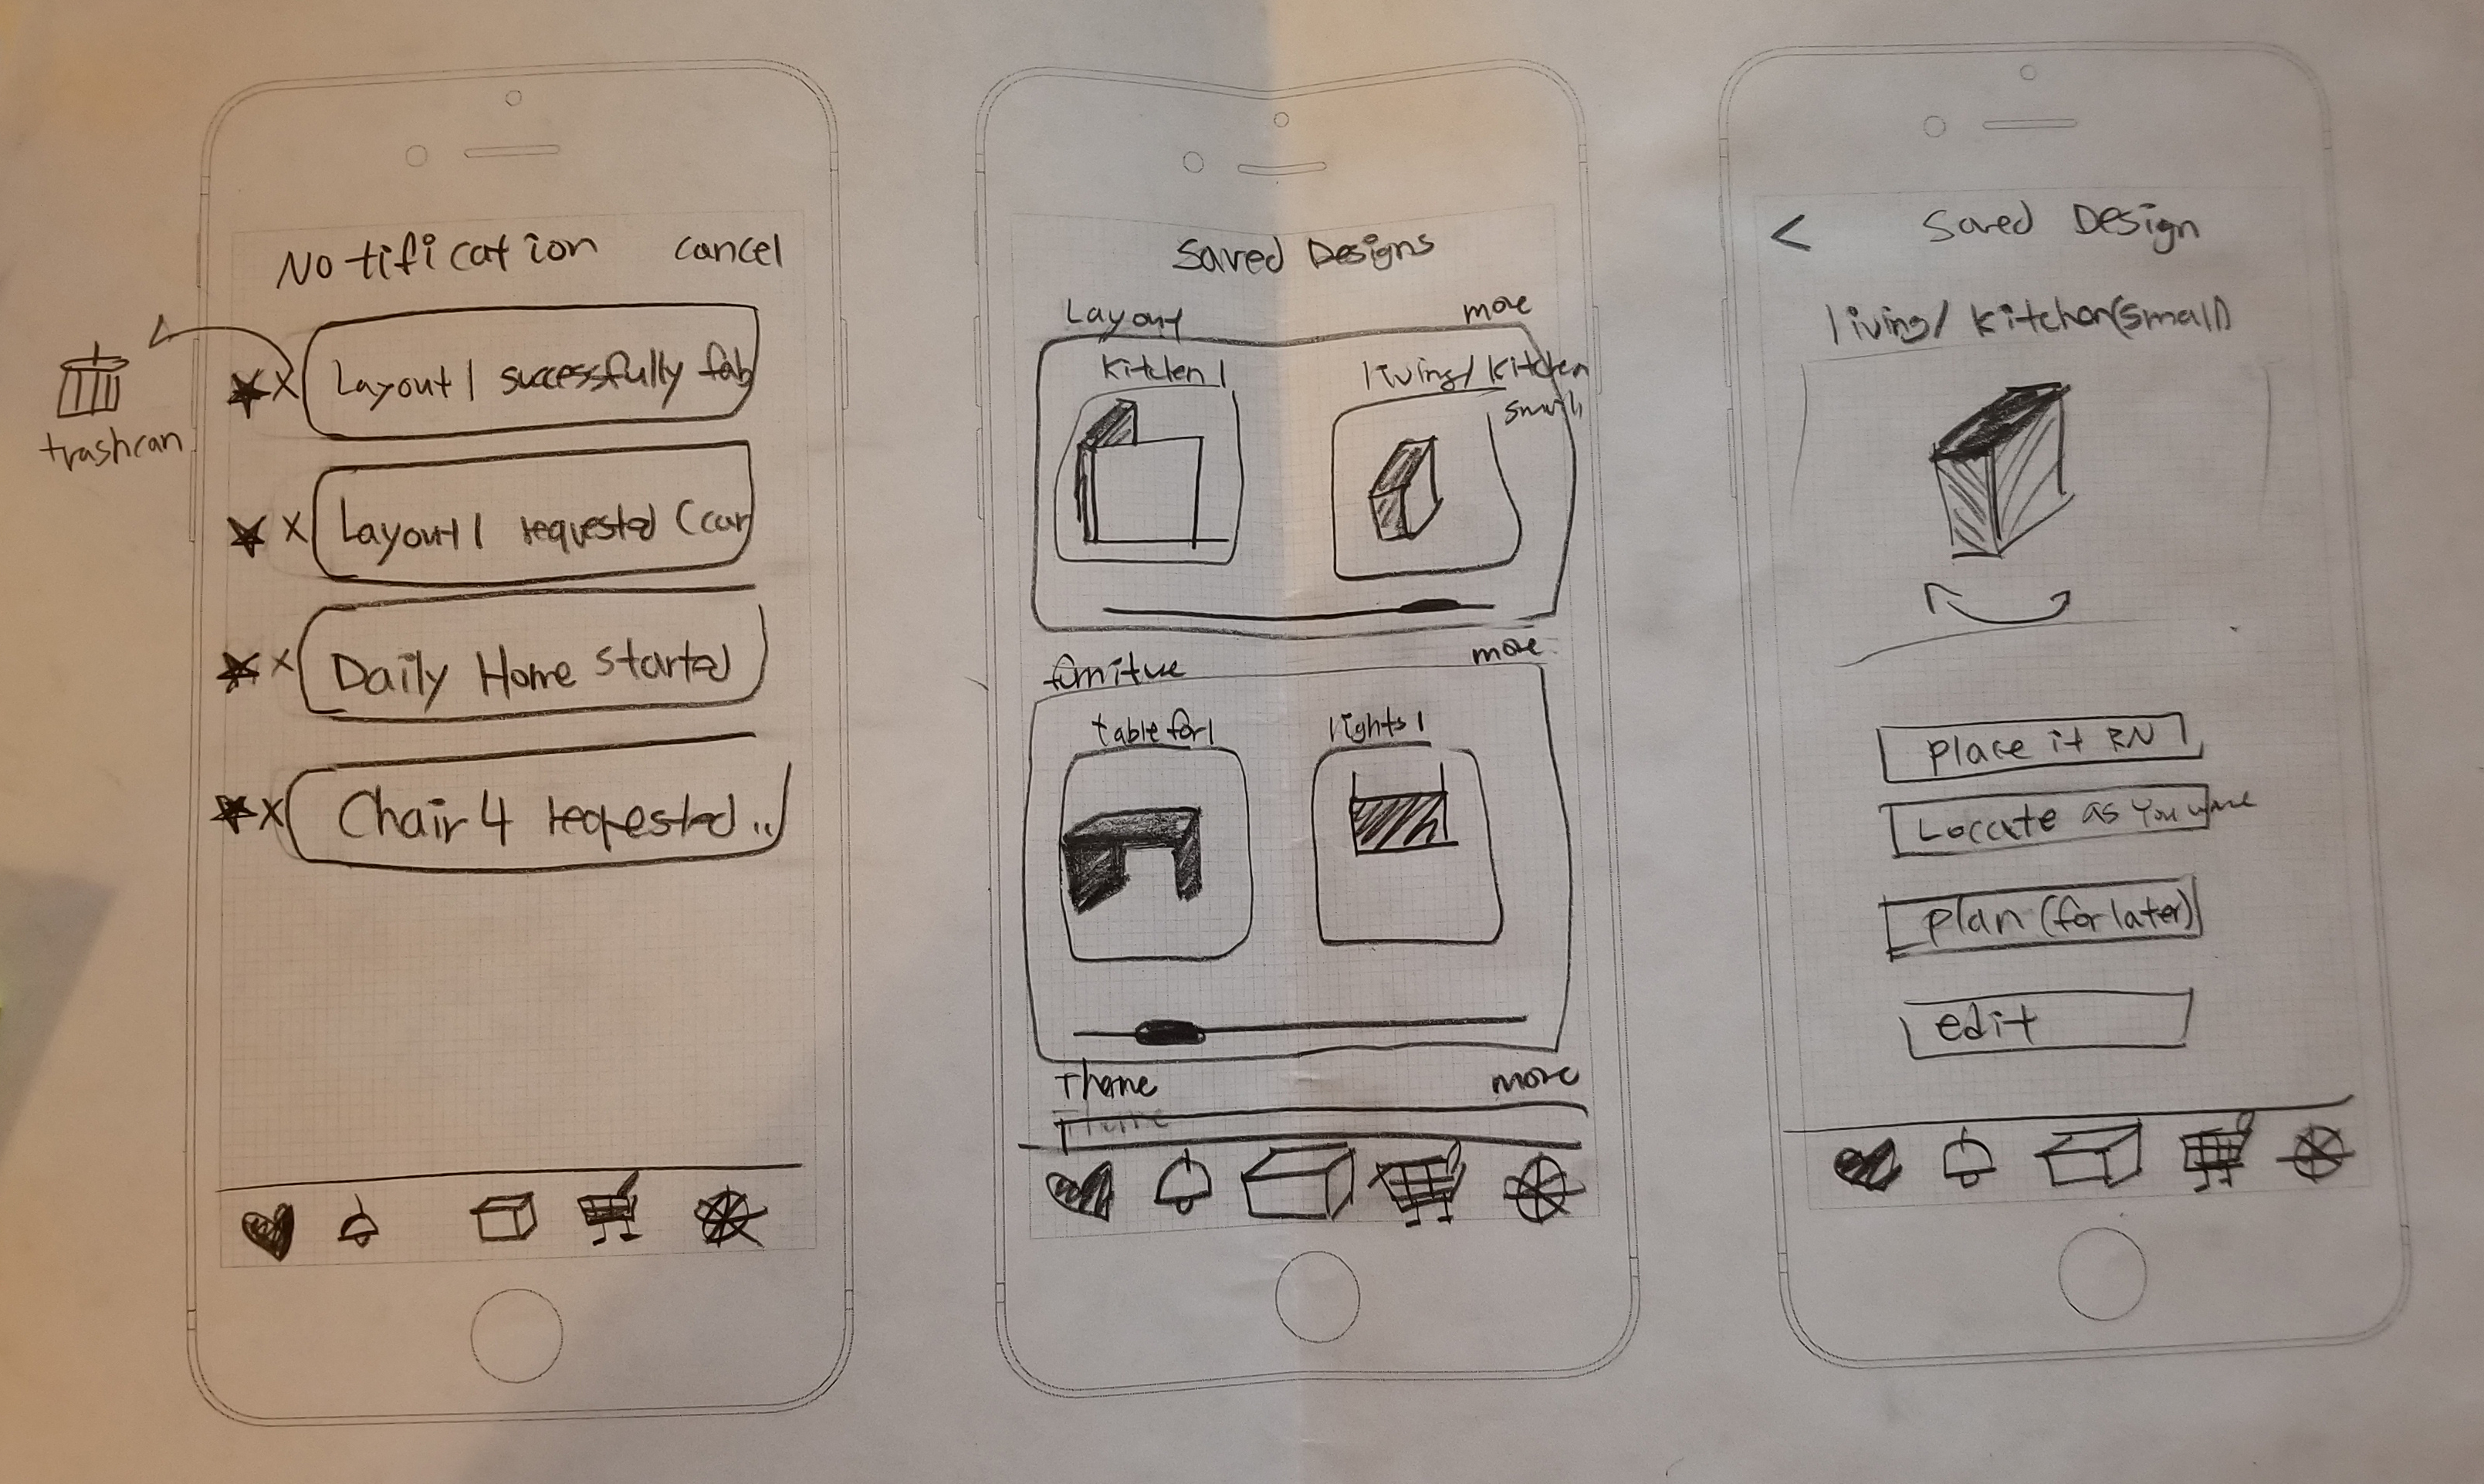 Notification cancel
trashcan
X Layout 1 successfully fab
X Layout 1 requested (cur
X Daily Home started
X Chair 4 requested ..
Saved Designs
Layout more
Kitchen 1 living/ kitchen
small
furniture more
table for 1 lights 1
Theme more
Theme
< Saved Design
living/ kitchen(small)
place it RN !
Locate as you
plan (for later)
edit